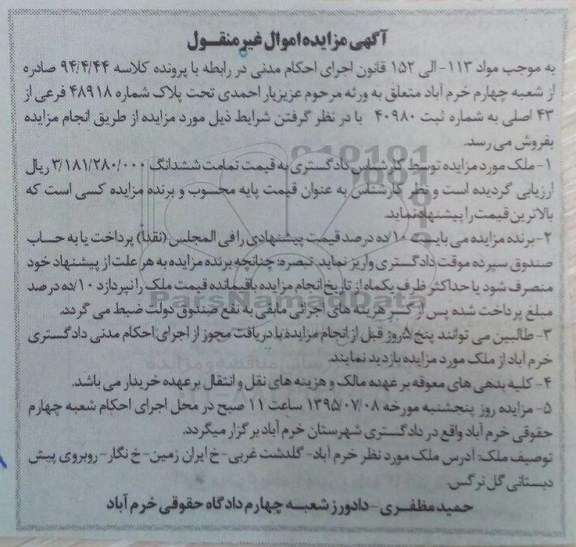 آگهی مزایده اموال غیر منقول
به موجب مواد ۱۱۳- الی ۱۵۲ قانون اجرای احکام مدنی در رابطه با پرونده کلاسه ۹۴/۴/۴۴ صادره
از شعبه چهارم خرم آباد متعلق به ورثه مرحوم عزیزیار احمدی تحت پلاک شماره ۴۸۹۱۸ فرعی از
۴۳ اصلی به شماره ثبت ۴۰۹۸۰ با در نظر گرفتن شرایط ذیل مورد مزایده از طریق انجام مزایده
بفروش می رسد.
۱-ملک مورد مزایده توسط کارشناس دادگستری به قیمت تمامت ششدانگ ۳/۱۸۱/۲۸۰/۰۰۰ ریال
ارزیابی گردیده است و نظر کارشناس به عنوان قیمت پایه محسوب و برنده مزایده کسی است که
بالاترین قیمت را پیشنهاد نماید.
۲-برنده مزایده می بایست ۱۰/ده درصد قیمت پیشنهادی را فی المجلس (نقدا) پرداخت یا به حساب
صندوق سپرده موقت دادگستری واریز نماید. تبصره: چنانچه برنده مزایده به هر علت از پیشنهاد خود
منصرف شود یا حداکثر ظرف یکماه از تاریخ انجام مزایده باقیمانده قیمت ملک را نپردازد ۱۰/ده درصد
مبلغ پرداخت شده پس از کسر هزینه های اجرائی مابقی به نفع صندوق دولت ضبط می گردد.
۳-طالبین می توانند پنج ۵روز قبل از انجام مزایده با دریافت مجوز از اجرای احکام مدنی دادگستری
خرم آباد از ملک مورد مزایده بازدید نمایند.
۴- کلیه بدهی های معوقه بر عهده مالک و هزینه های نقل و انتقال بر عهده خریدار می باشد.
۵- مزایده روز پنجشنبه مورخه ۱۳۹۵/۰۷/۰۸ ساعت ۱۱ صبح در محل اجرای احکام شعبه چهارم
حقوقی خرم آباد واقع در دادگستری شهرستان خرم آباد برگزار میگردد.
توصیف ملک: آدرس ملک مورد نظر خرم آباد- گلدشت غربی-خ ایران زمین-خ نگار-روبروی پیش
دبستانی گل نرگس.
حمید مظفری-دادورز شعبه چهارم دادگاه حقوقی خرم آباد
ParsNamadData